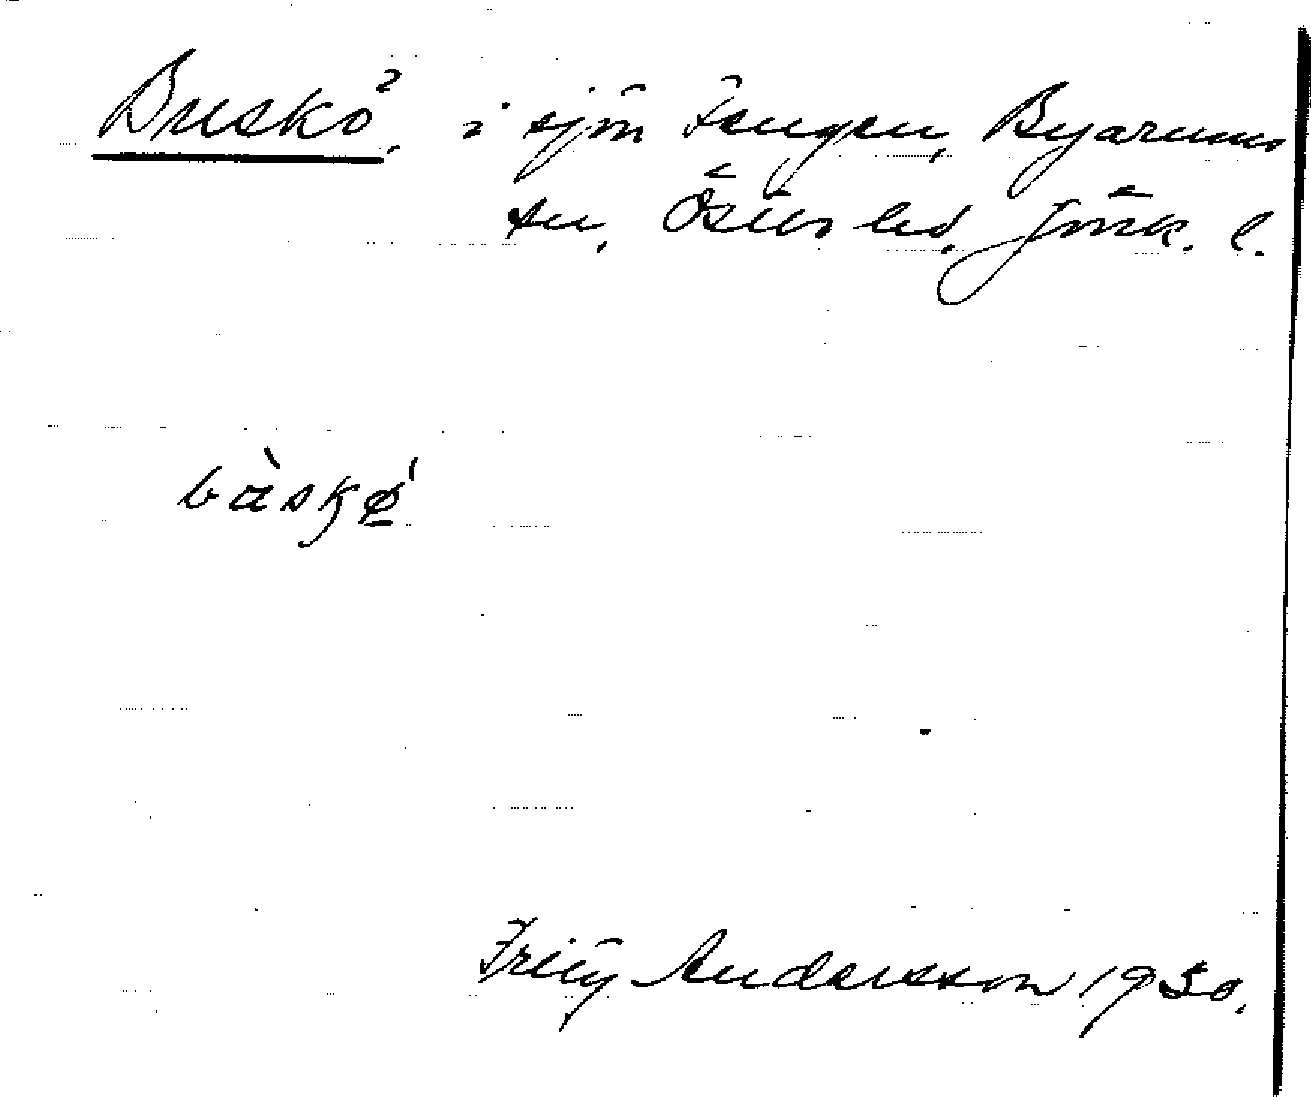 Buskö, i sjön Fängen, Byarums
sn, Östbo hd, Jönk. l.
bàskǿ̲
Fritz Andersson 1930.